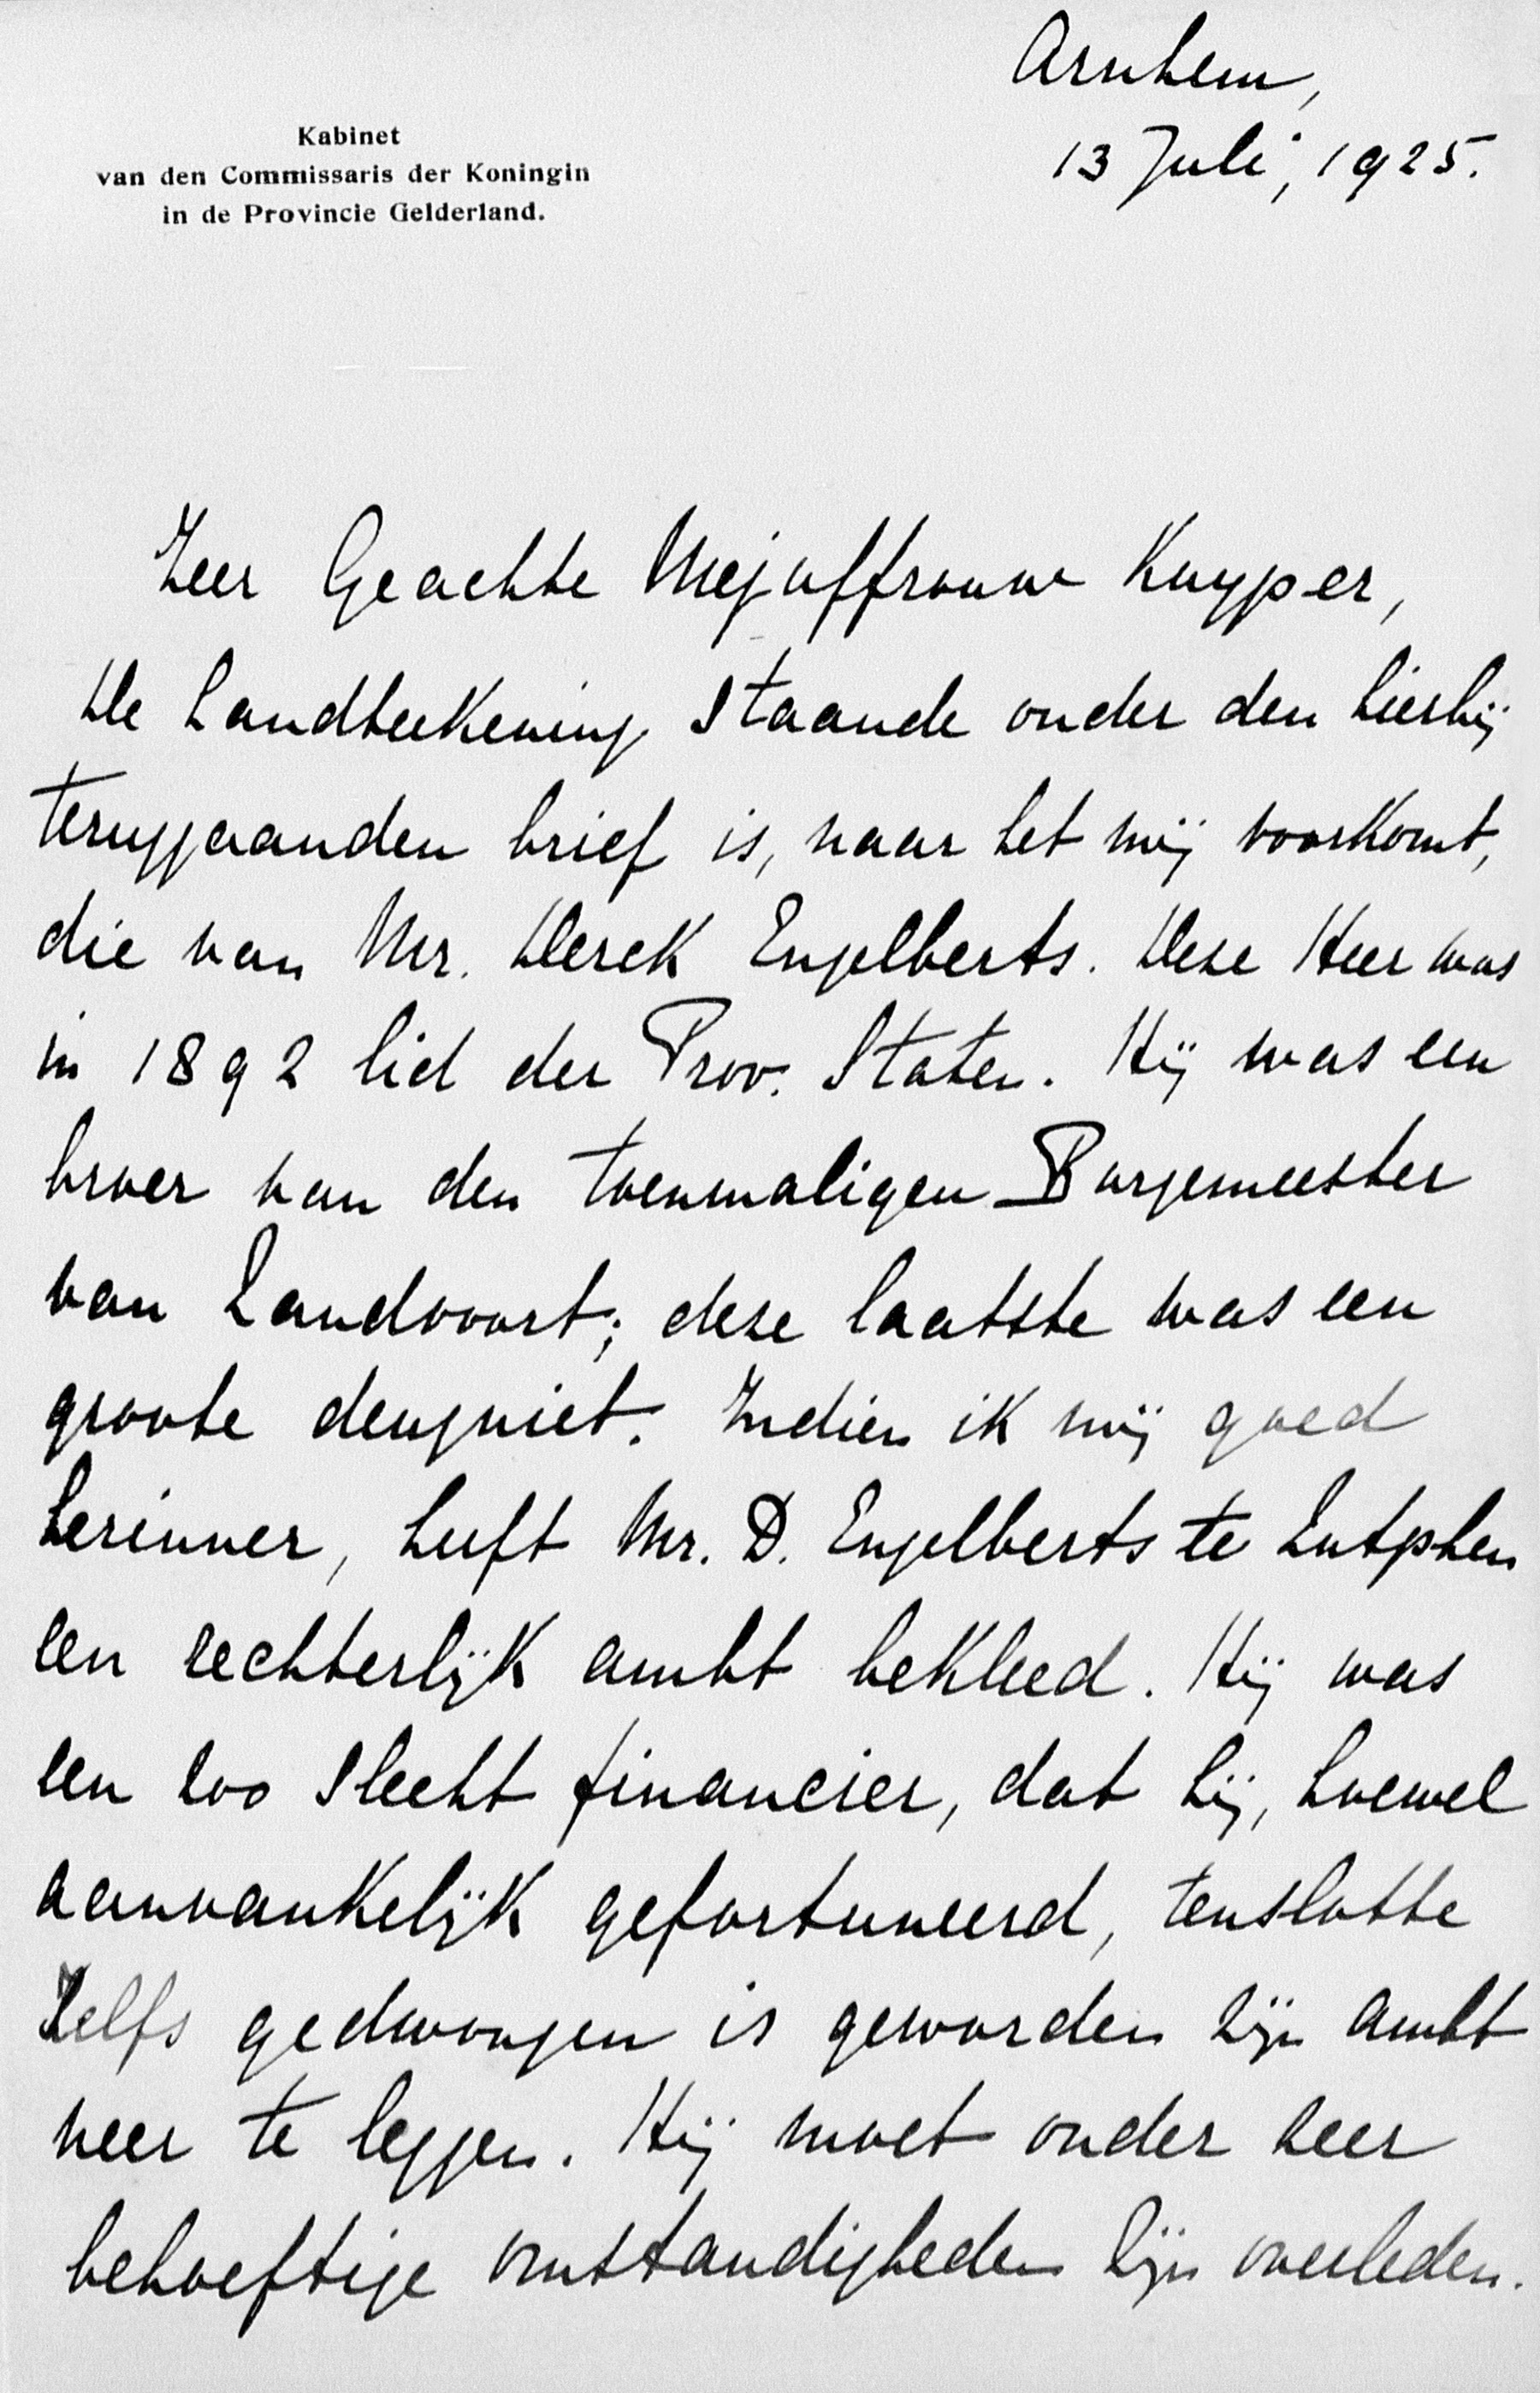 Arnhem,
13 Juli, 1925.
Kabinet
van den Commissaris der Koningin
in de Provincie Gelderland.
Zeer Geachte Mejuffrouw Kuyper,
De handteekening staande onder den hierbij
teruggaanden brief is, naar het mij voorkomt,
die van Mr. Derck Engelberts. Deze Heer was
in 1892 lid der Prov. Staten. Hij was een
broer van den toenmaligen Burgemeester
van Zandvoort; deze laatste was een
groote deugniet. Indien ik mij goed
herinner, heeft Mr. D. Engelberts te Zutphen
een rechterlijk ambt bekleed. Hij was
een zoo slecht financier, dat hij, hoewel
aanvankelijk gefortuneerd, tenslotte
zelfs gedwongen is geworden zijn ambt
neer te leggen. Hij moet onder zeer
behoeftige omstandigheden zijn overleden.